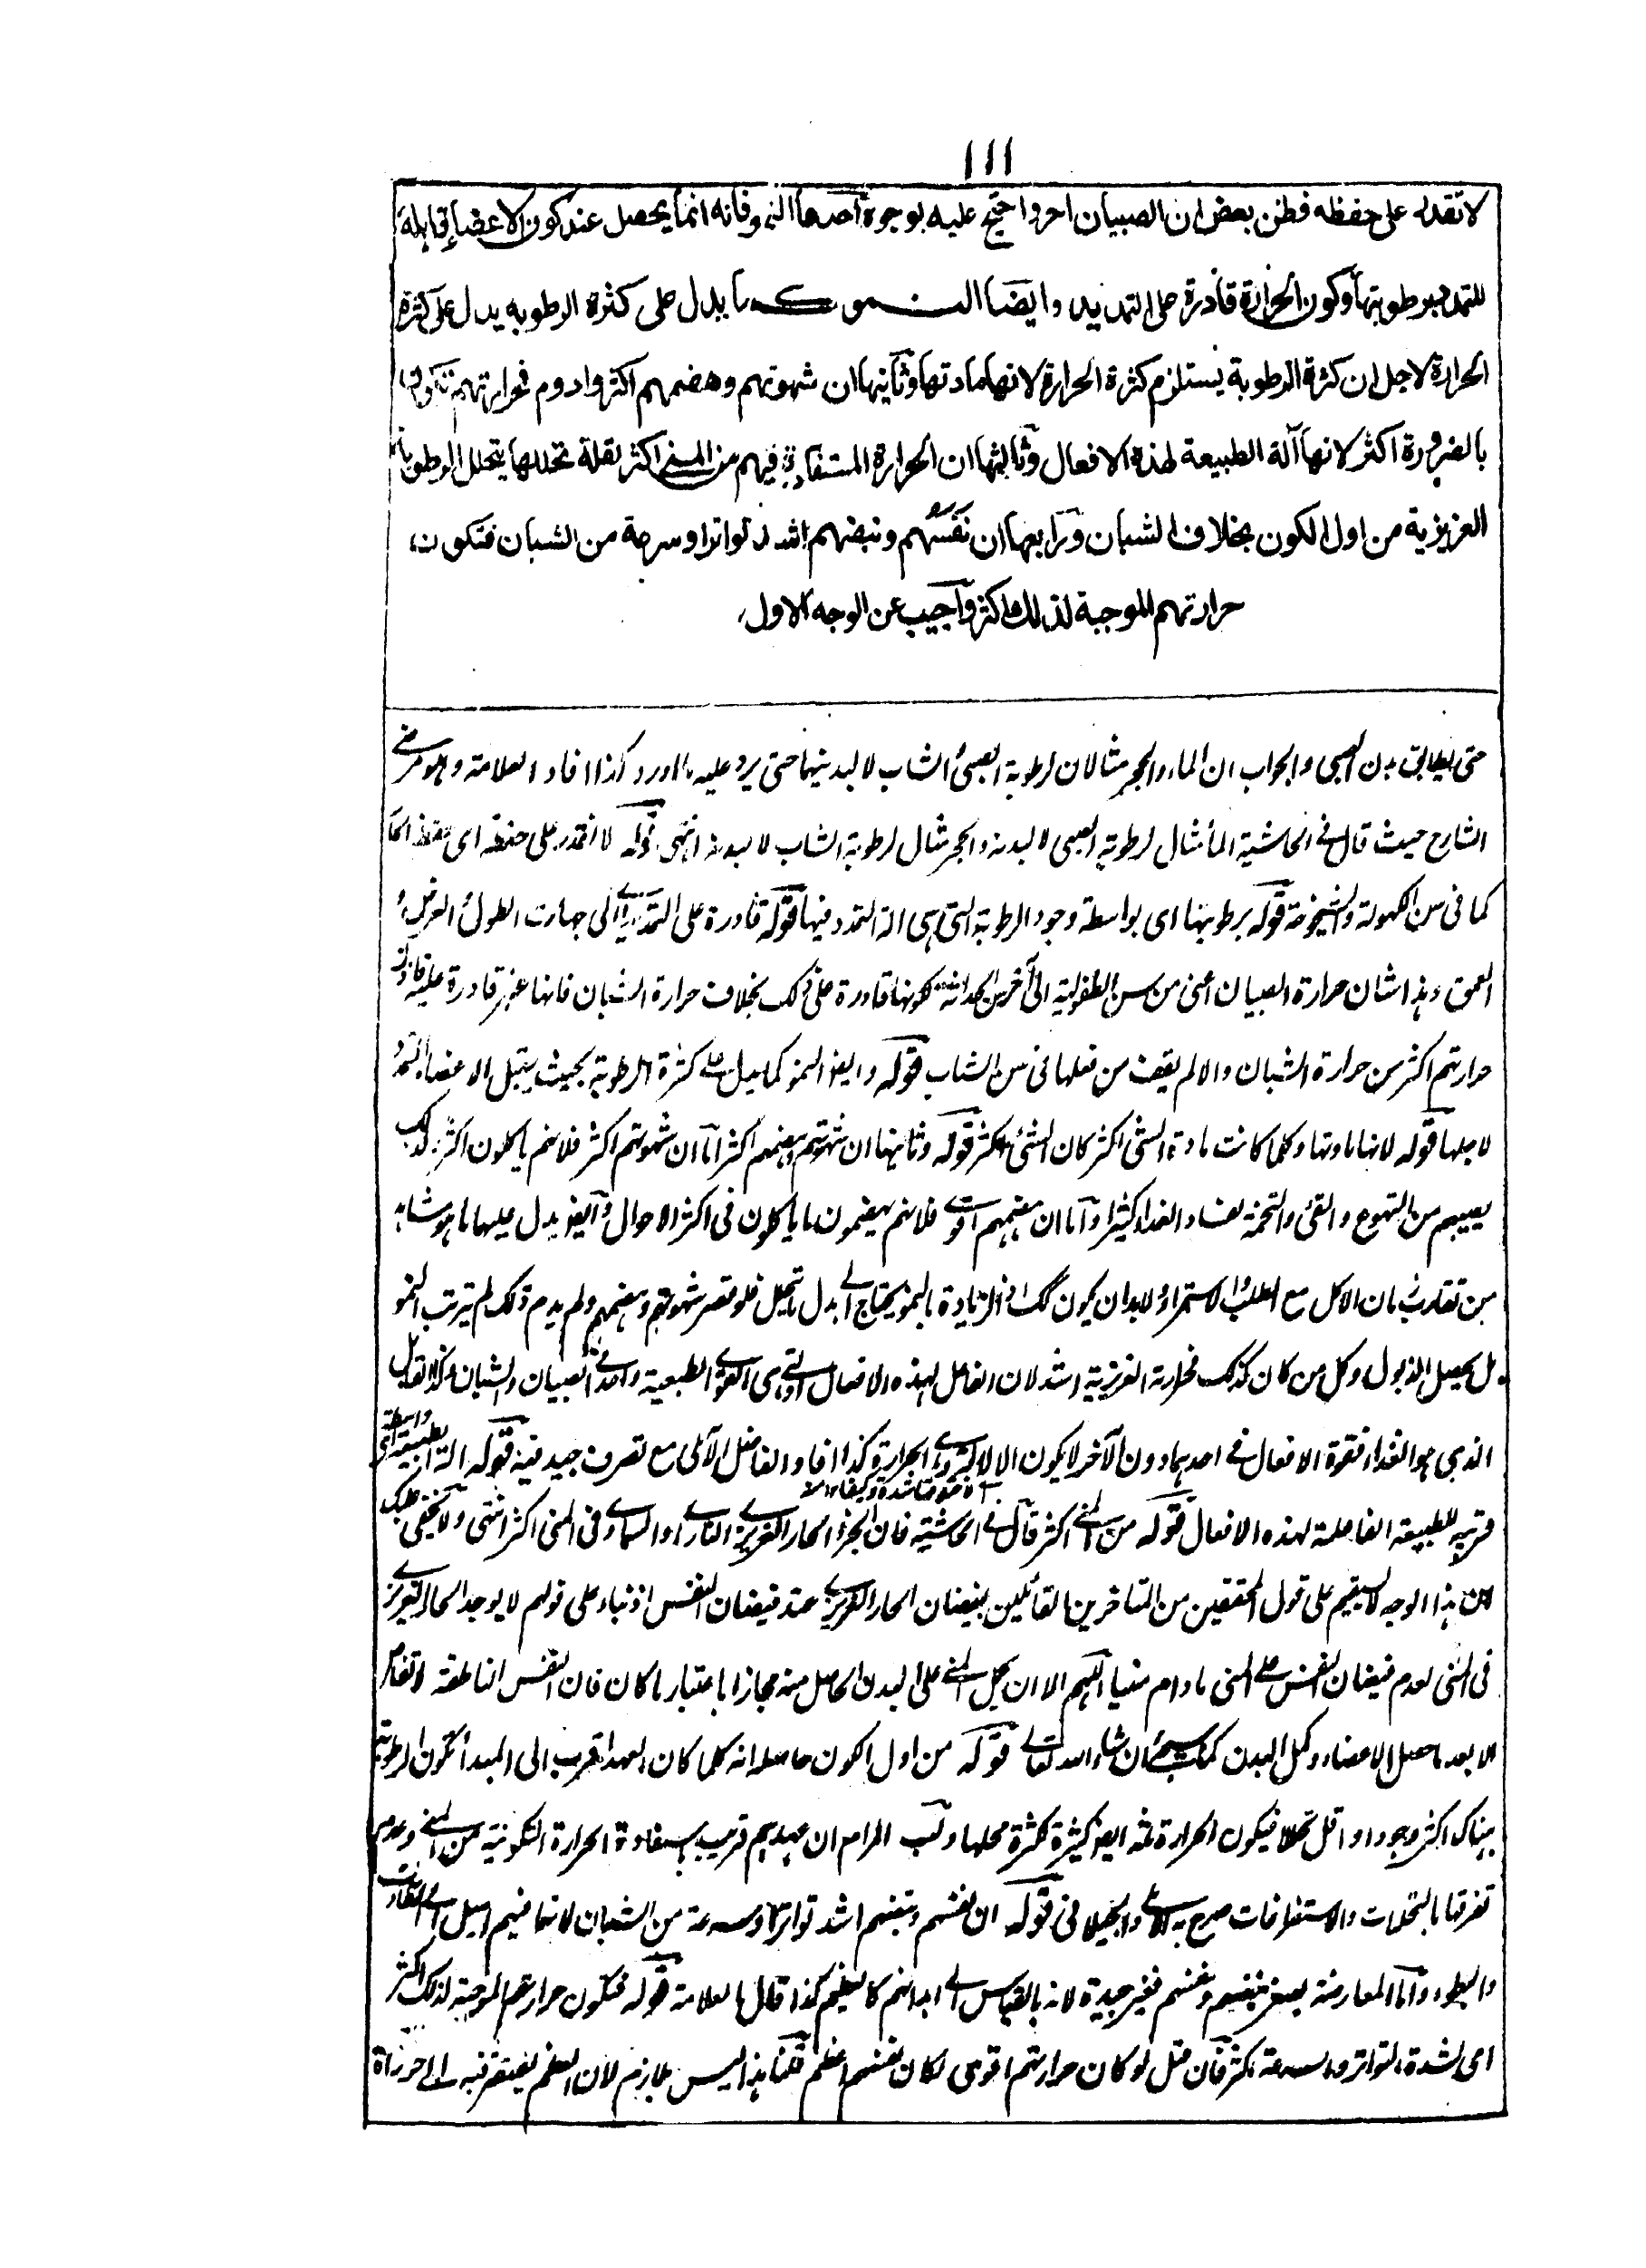 ١١١
لا تقدر على حفظه فظن بعض ان الصبيان احر واحتج عليه بوجوه احدها النمو فانه انما يحصل عند كون الاعضاء قابلة
للتمدد برطوبتها وكون الحرارة قادرة على التمديد وايضا النمو كما يدل على كثرة الرطوبه يدل على كثرة
الحرارة لاجل ان كثرة الرطوبة يستلزم كثرة الحرارة لانها مادتها وثانيها ان شهوتهم وهضمهم اكثر وادوم فحرارتهم تكون
بالضرورة اكثر لانها آلة الطبيعة لهذه الافعال وثالثها ان الحرارة المستفادة فيهم من المني اكثر لقلة تحللها بتحلل الرطوبات
الغريزية من اول الكون بخلاف الشبان ورابعها ان نفسهم ونبضهم اشد تواترا وسرعة من الشبان فتكون
حرارتهم الموجبة لذلك اكثر واجيب عن الوجه الاول
حتى يطابق بدن الصبى والجواب ان الماء والحجر مثالان لرطوبة الصبى والشاب لا لبدنيهما حتى يرد عليه ما اورد كذا افاد العلامة وهو مرضى
الشارح حيث قال فى الحاشية الماء مثال لرطوبة الصبى لا لبدنه والحجر مثال لرطوبة الشاب لا لبدنه انتهى قوله لا تقدر على حفظه اى حفظ الحار
كما فى سن الكهولة والشيخوخة قوله برطوبتها اى بواسطة وجود الرطوبة التى هى آلة التمدد فيها قوله قادرة على التمديد اى الى جهات الطول والعرض و
العمق وهذا شان حرارة الصبيان اعنى من سن الطفولية الى آخر سن الحداثة لكونها قادرة على ذلك بخلاف حرارة الشبان فانها غير قادرة عليه فاذن
حرارتهم اكثر من حرارة الشبان والا لم يقف من فعلها فى سن الشاب قوله وايضا النمو كما يدل على كثرة الرطوبة بحيث يقبل الاعضاء التمدد
لاجلها قوله لانها مادتها وكلما كانت مادة الشئ اكثر كان الشئ اكثر قوله وثانيها ان شهوتهم وهضمهم اكثر اما ان شهوتهم اكثر فلانهم ياكلون اكثر ولذلك
يصيبهم من التهوع والقئ والتخمة لفساد الغذاء كثيرا واما ان هضمهم اقوى فلانهم يهضمون ما ياكلون فى اكثر الاحوال وايضا يدل عليها ما هو مشاهد
من تقارب زمان الاكل مع الطلب والاستمراء ولا بد ان يكون كذلك اذ الزيادة بالنمو يحتاج الى بدل ما يتحلل فلو قصر شهوتهم وهضمهم ولم يدم ذلك لم يترتب النمو
بل يحصل الذبول وكل من كان كذلك فحرارته الغريزية اشد لان الفاعل لهذه الافعال هى القوى الطبيعية واحدة فى الصبيان والشبان وكذا القابل
الذى هو الغذاء فقوة الافعال فى احدهما دون الآخر لا يكون الا لاكثرية الحرارة كذا افاد الفاضل الآملى مع تصرف جيد فيه قوله آلة الطبيعة اى واسطة
قريبة للطبيعة الفاعلة لهذه الافعال قوله من المنى اكثر قال فى الحاشية فان الجزء الحار الغريزى النارى او السماوى فى المنى اكثر انتهى ولا يخفى عليك
ان هذا الوجه لا يستقيم على قول المحققين من المتاخرين القائلين بفيضان الحار الغريزى عند فيضان النفس اذ بناء على قولهم لا يوجد الحار الغريزى
فى المنى لعدم فيضان النفس على المنى ما دام منيا اللهم الا ان يحمل المنى على البدن الحاصل منه مجازا باعتبار ما كان فان النفس الناطقة لا تفاض
الا بعد ما حصل الاعضاء وكمل البدن كما سيجئ ان شاء الله تعالى قوله من اول الكون حاصله انه كلما كان العهد اقرب الى المبدأ تكون الرطوبة
هناك اكثر وجودا واقل تحللا فيكون الحرارة ثمه ايضا كثيرة لكثرة محلها ولب المرام ان عهدهم قريب باستفادة الحرارة التكونية من المنى وعدم
تفرقها بالتحللات والاستفراغات صرح به الآملى والجيلانى قوله ان نفسهم ونبضهم اشد تواترا وسرعة من الشبان لانها فيهم اميل الى التفاوت
والبطوء واما المعارضة بصغر نبضهم ونفسهم فغير جيدة لانه بالقياس الى ابدانهم كالعظيم كذا قال العلامة قوله فتكون حرارتهم الموجبة لذلك اكثر
اى لشدة التواتر والسرعة اكثر فان قيل لو كان حرارتهم اقوى لكان نفسهم اعظم قلنا هذا ليس بلازم لان العظم يفتقر فيه الى حرارة